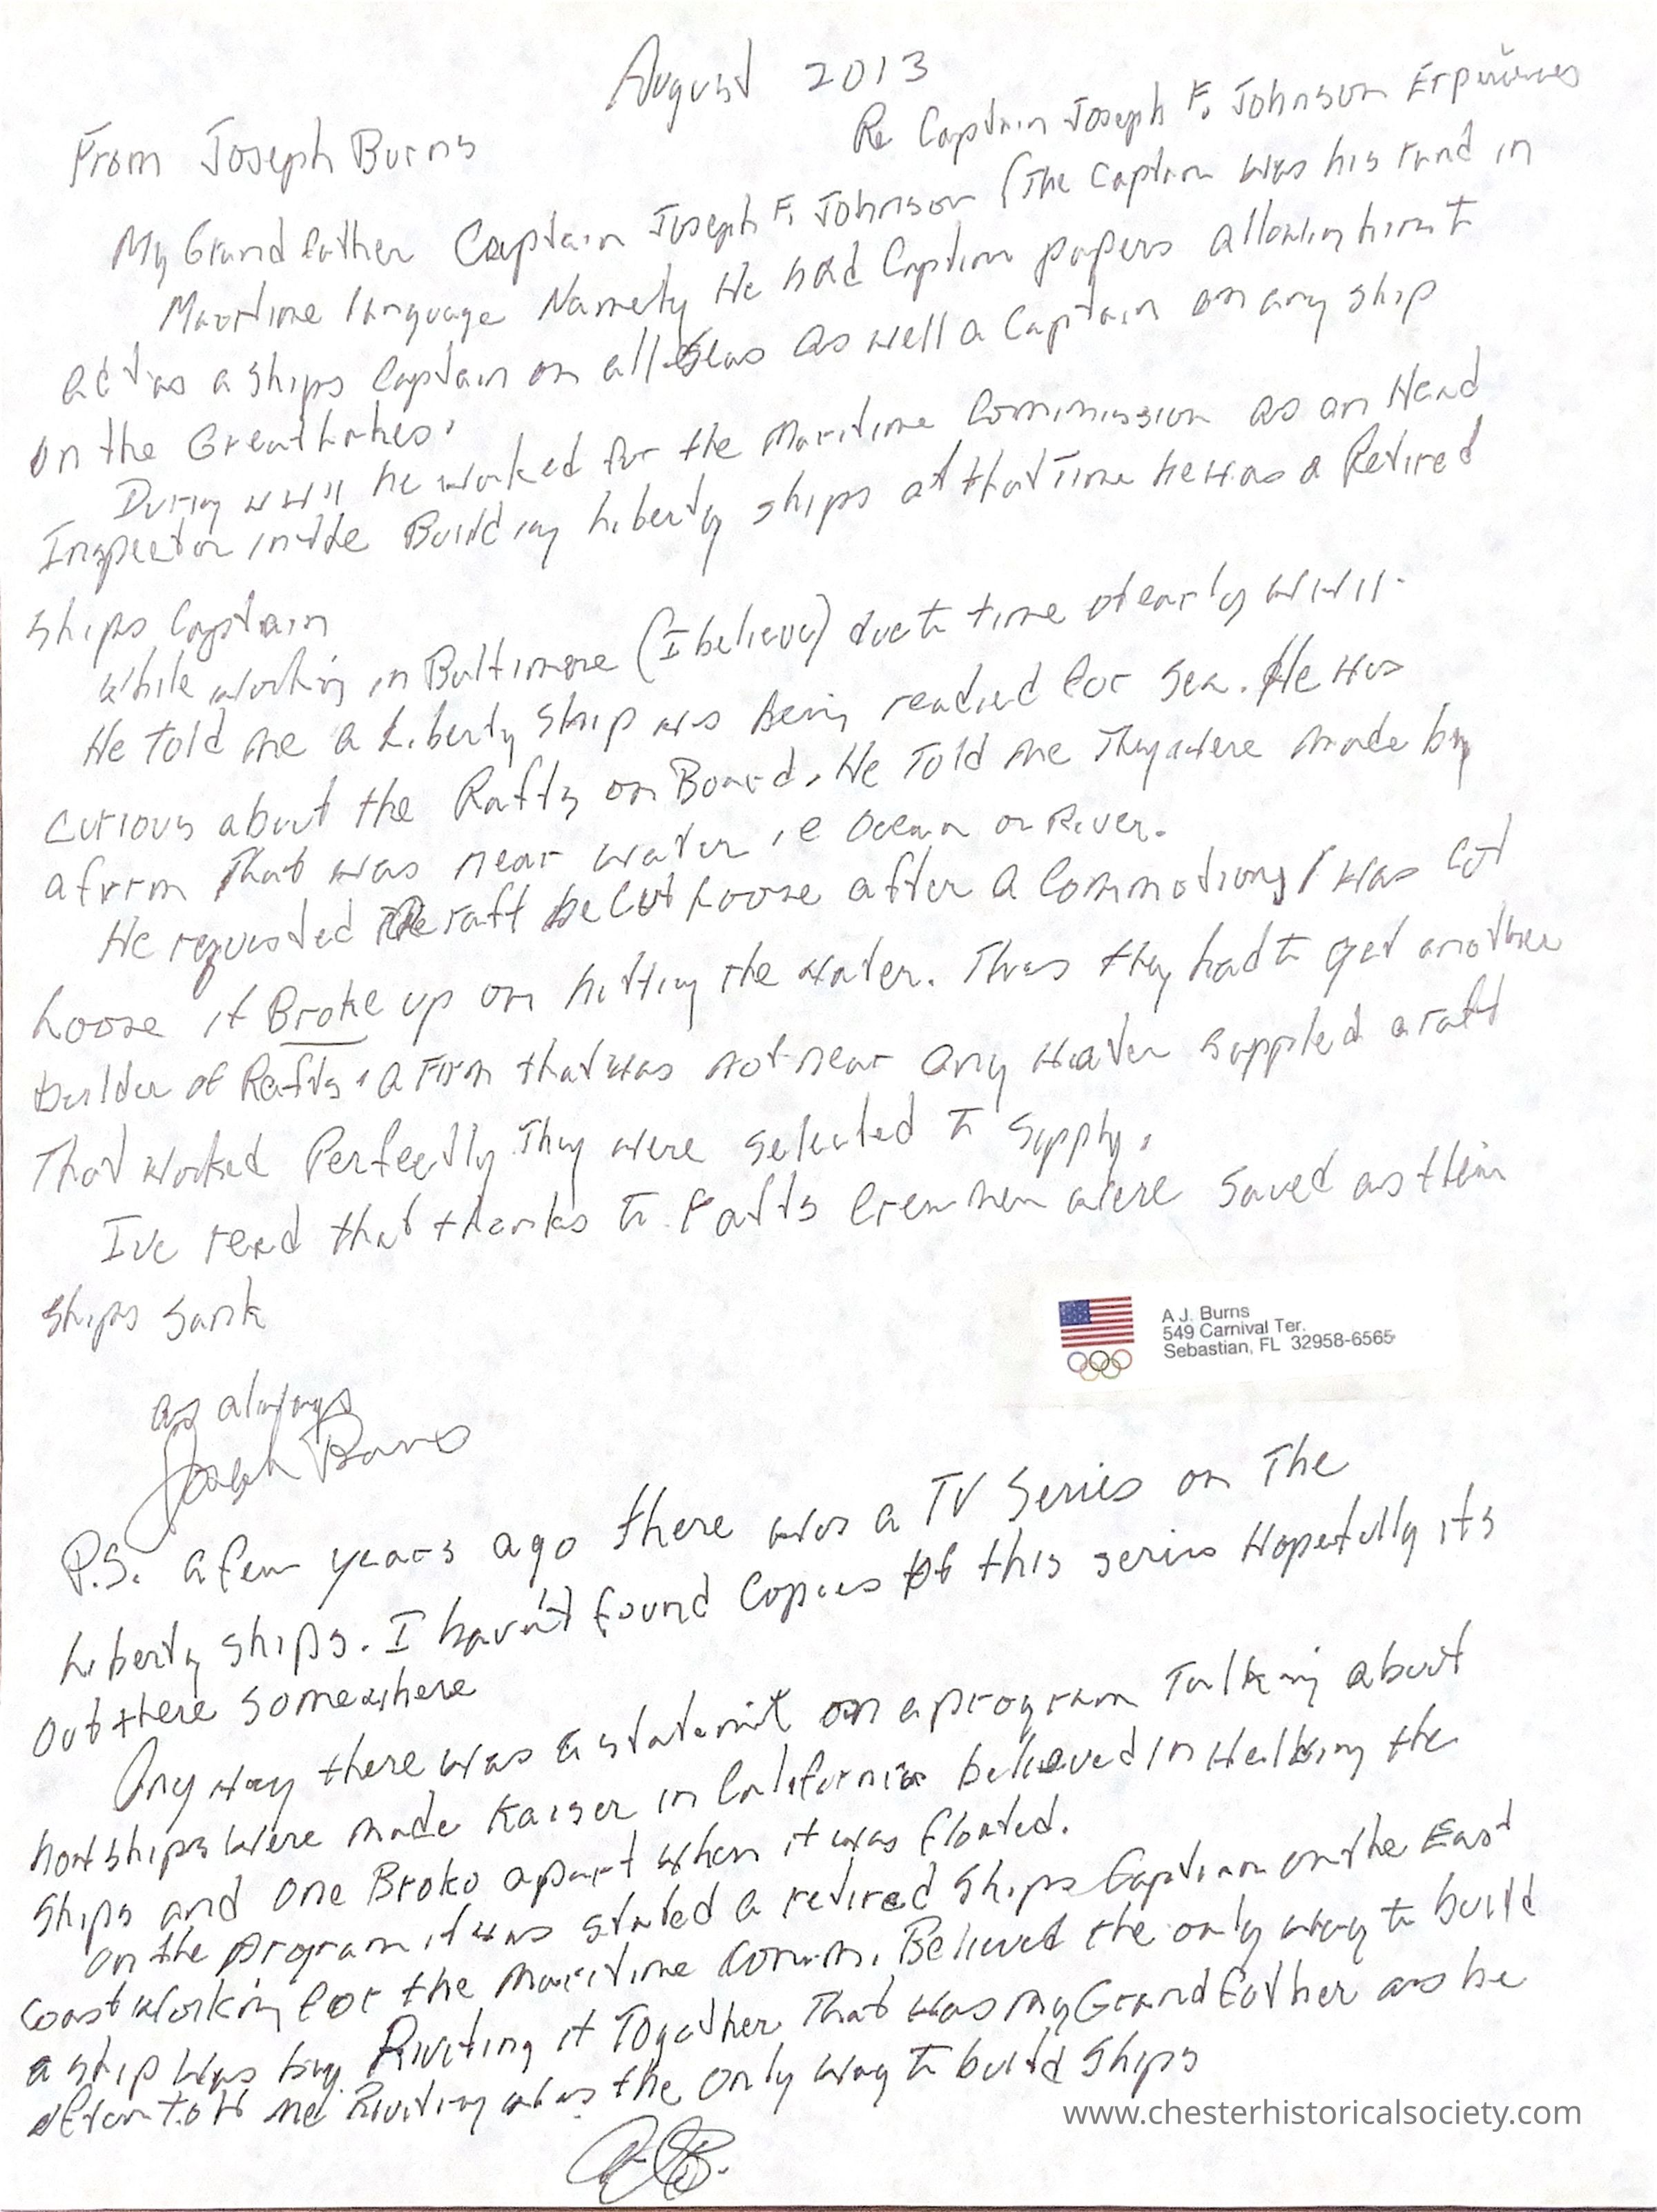 August 2013
From Joseph Burns
Re Captain Joseph F. Johnson Experiences
My Grandfather Captain Joseph F. Johnson (The Captain was his rank in
Maritime language Namely He had Captain papers allowing him to
act as a ships Captain on all Seas as well a Captain on any ship
on the Great Lakes.
During WWII he worked for the Maritime Commission as an Head
Inspector in the Building Liberty ships at that Time he was a Retired
ships Captain
While working in Baltimore (I believe) due to time of early WWII.
He told me a Liberty Ship was Being readied for sea. He was
curious about the Rafts on Board. He Told me They were made by
a firm That was near water ie Ocean or River.
He requested The raft be Cut Loose after a Commotion, I was cut
Loose it Broke up on hitting the water. Thus they had to get another
builder of Rafts. a Firm that was not near any water supplied a raft
That worked Perfectly They were selected to supply.
Ive read that thanks to Rafts Crewmen were saved as their
ships sank
A J. Burns
549 Carnival Ter.
Sebastian, FL 32958-6565
as always
Joseph Burns
P.S. a few years ago there was a TV Series on The
Liberty ships. I haven't found copies of this series Hopefully its
out there somewhere
Any way there was a statemit on a program Talking about
how ships were made Kaiser in California believed in Welding the
Ships and One Broke apart when it was floated.
On the program it was stated a retired Ships Captain on the East
coast working for the Maritime Comm. Believed the only way to build
a ship was by Riviting it Together That was my Grandfather as he
often told me Riviting was the only way to build Ships
www.chesterhistoricalsociety.com